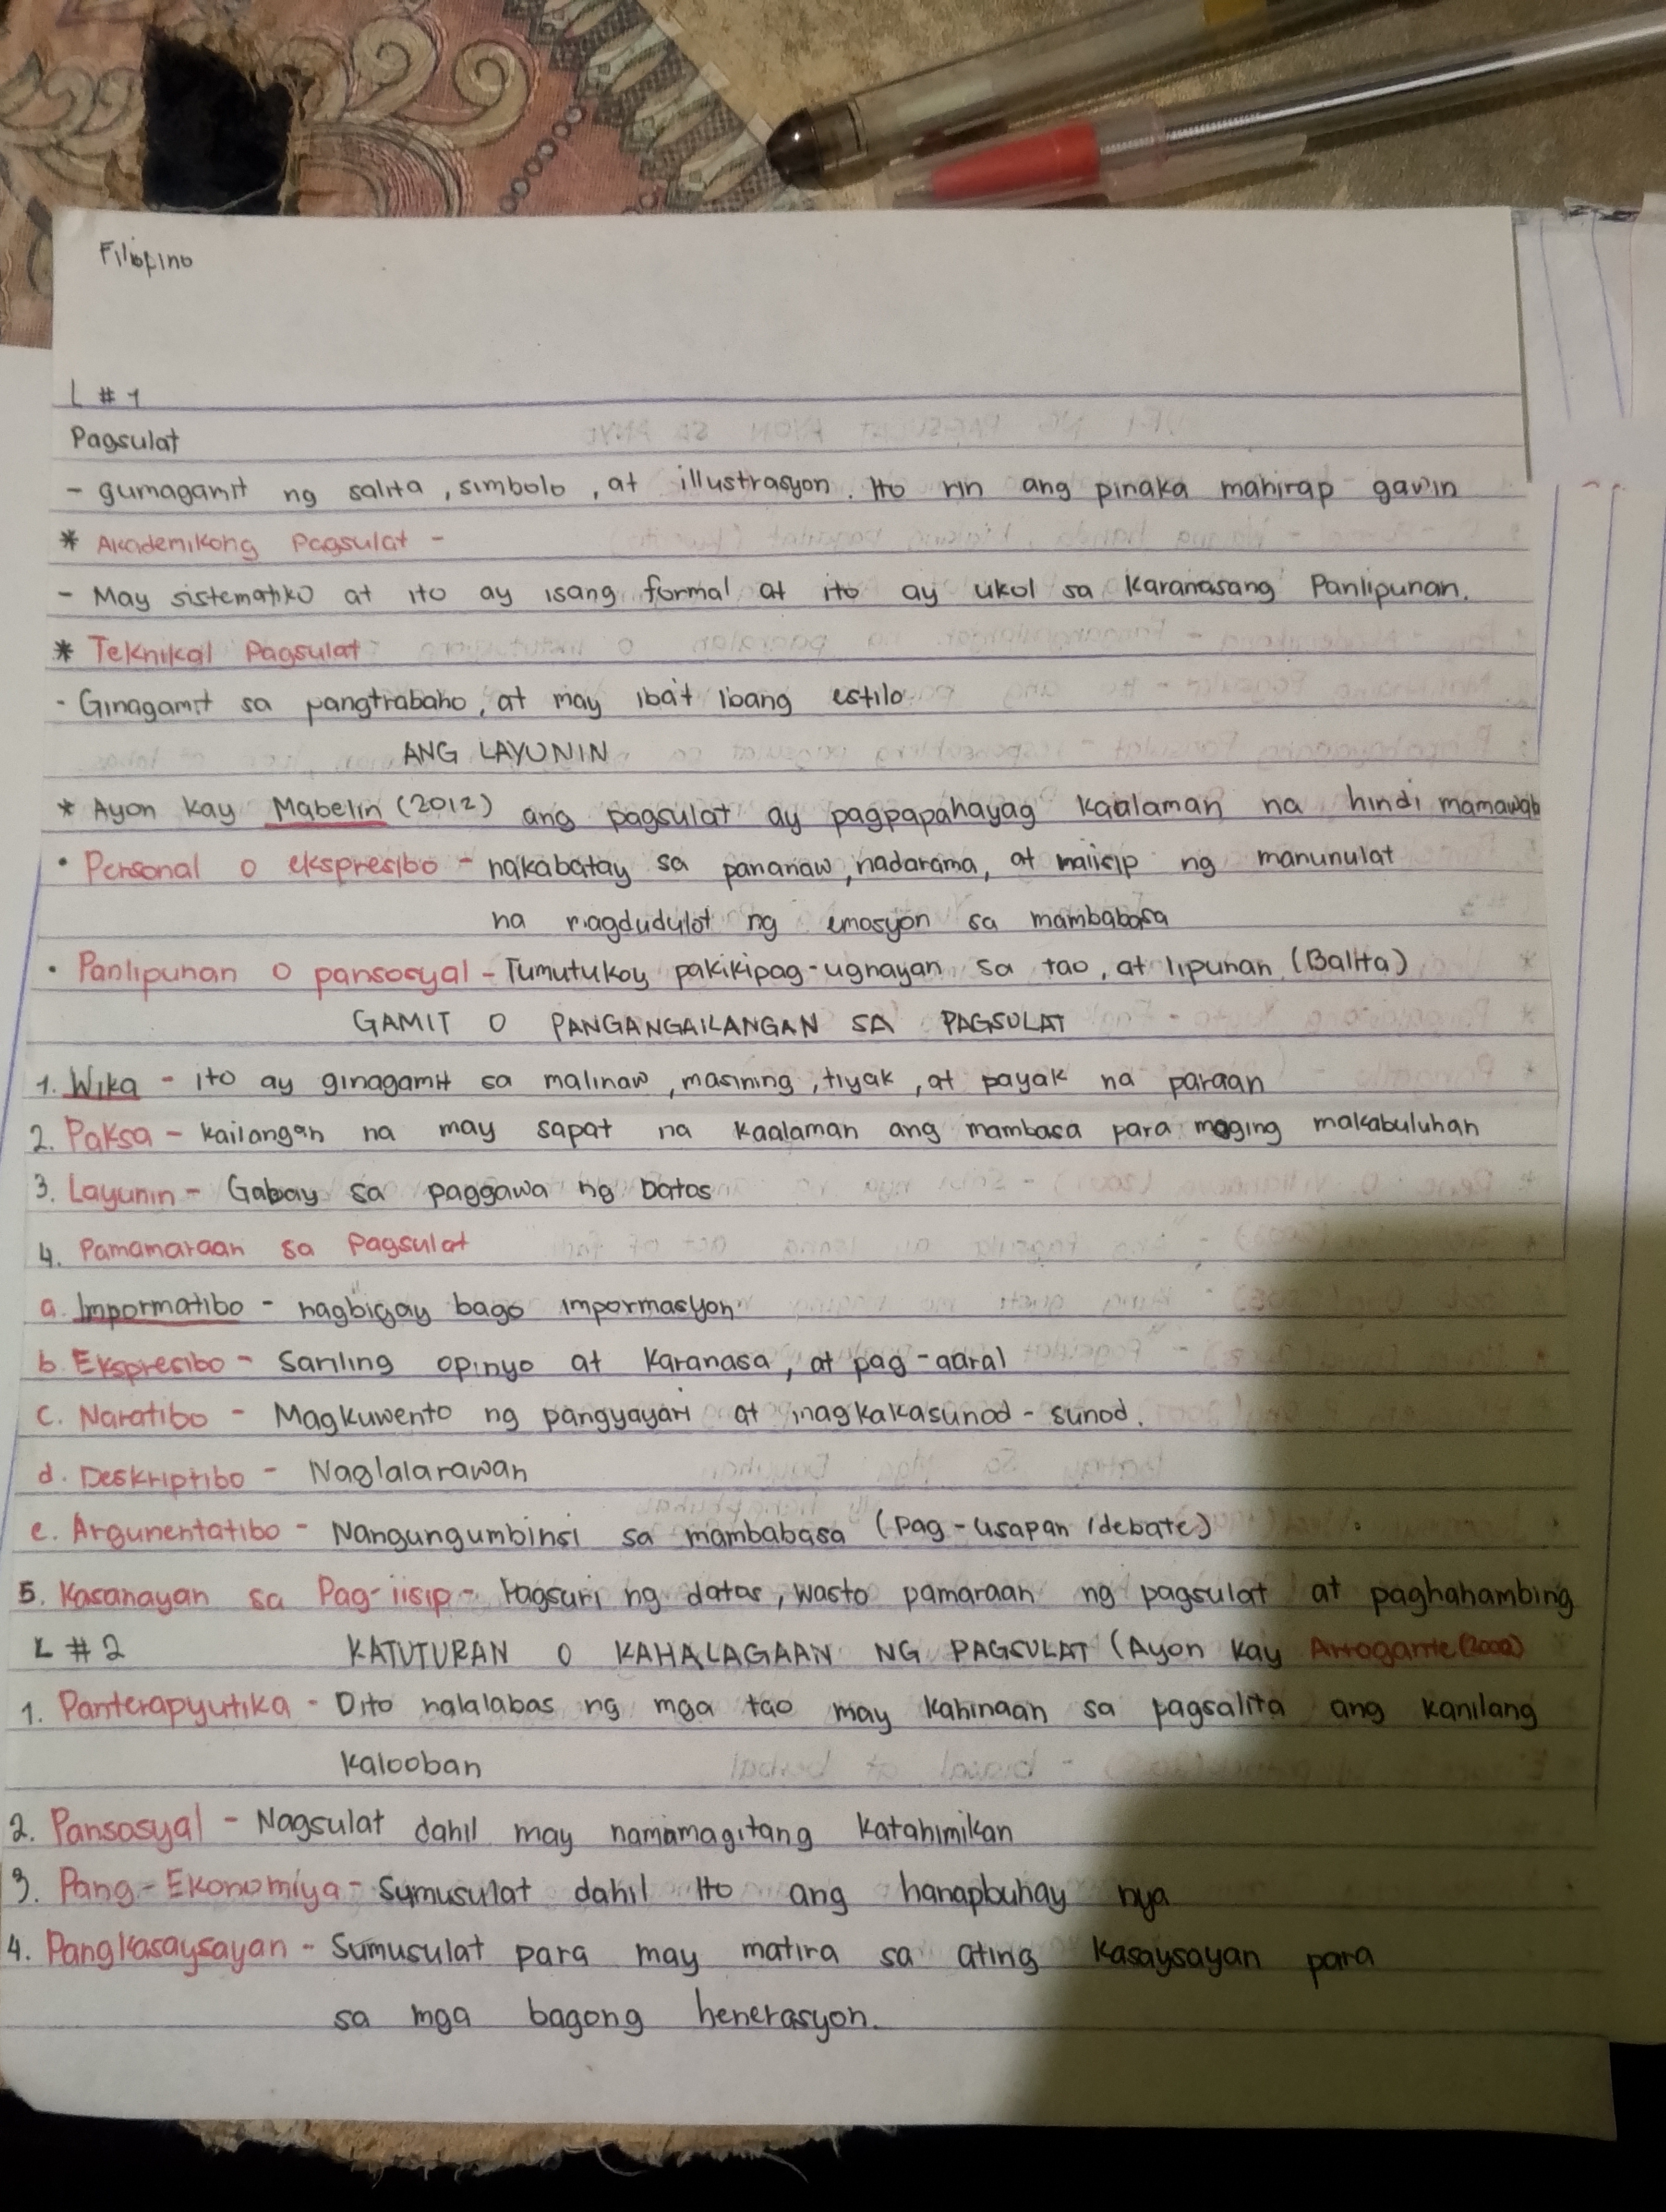 Filipino
L # 1
Pagsulat
- gumagamit ng salita, simbolo, at illustrasyon. Ito rin ang pinaka mahirap gawin
* Akademikong Pagsulat -
- May sistematiko at ito ay isang formal at ito ay ukol sa Karanasang Panlipunan.
* Teknikal Pagsulat
- Ginagamit sa pangtrabaho, at may iba't ibang estilo
ANG LAYUNIN
* Ayon kay Mabelin (2012) ang pagsulat ay pagpapahayag kaalaman na hindi mamawab
• Personal o ekspresibo - nakabatay sa pananaw, nadarama, at maiisip ng manunulat
na magdudulot ng emosyon sa mambabasa
• Panlipunan o pansosyal - Tumutukoy pakikipag-ugnayan sa tao, at lipunan (Balita)
GAMIT O PANGANGAILANGAN SA PAGSULAT
1. Wika - ito ay ginagamit sa malinaw, masining, tiyak, at payak na paraan
2. Paksa - kailangan na may sapat na kaalaman ang mambasa para maging makabuluhan
3. Layunin - Gabay sa paggawa ng Datos
4. Pamamaraan sa Pagsulat
a. Impormatibo - nagbigay bago impormasyon
b. Ekspresibo - Sariling opinyo at Karanasa, at pag-aaral
c. Naratibo - Magkuwento ng pangyayari at magkakasunod - sunod.
d. Deskriptibo - Naglalarawan
e. Argumentatibo - Nangungumbinsi sa mambabasa (Pag-usapan /debate)
5. Kasanayan sa Pag-iisip - Pagsuri ng datos, wasto pamaraan ng pagsulat at paghahambing
L # 2 KATUTURAN O KAHALAGAAN NG PAGSULAT (Ayon kay Arrogante (2000)
1. Panterapyutika - Dito nalalabas ng mga tao may kahinaan sa pagsalita ang kanilang
kalooban
2. Pansosyal - Nagsulat dahil may namamagitang katahimikan
3. Pang-Ekonomiya - Sumusulat dahil Ito ang hanapbuhay nya
4. Pangkasaysayan - Sumusulat para may matira sa ating kasaysayan para
sa mga bagong henerasyon.